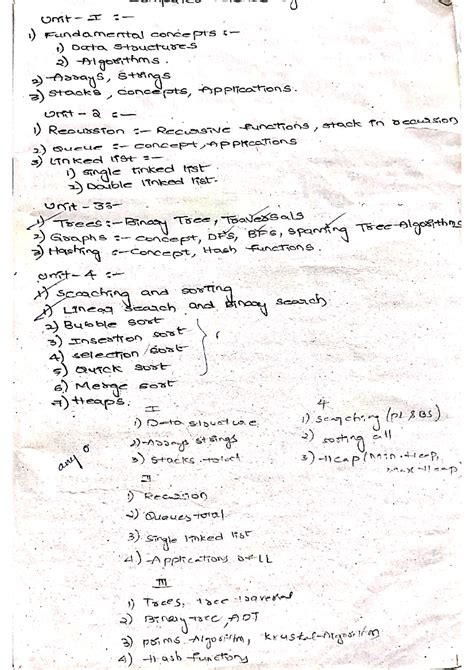 Unit - I :-
1) Fundamental concepts :-
1) Data Structures
2) Algorithms.
2) Arrays, Strings
3) Stacks, concepts, Applications.
Unit - 2 :-
1) Recussion :- Recursive functions, stack in recursion
2) Queue :- concept, Applications
3) Linked list :-
1) single linked list
2) Double linked list.
Unit - 3:-
1) Trees :- Binary Tree, Traversals
2) Graphs :- Concept, DFS, BFS, Spanning Tree Algorithms
3) Hashing :- Concept, Hash functions.
Unit - 4 :-
1) Searching and sorting
1) Linear search and Binary search
2) Bubble sort
3) Insertion sort
4) selection sort
5) Quick sort
6) Merge sort
7) Heaps.
I
1) Data structure
2) Arrays strings
3) Stacks total
any
4
1) searching (
2) sorting all
3) Heap (Min Heap,
Max Heap
II
1) Recursion
2) Queues total
3) Single linked list
4) Applications of LL
III
1) Trees, tree traversal
2) Binary tree, ADT
3) prims Algorithm, kruskal Algorithm
4) Hash functions